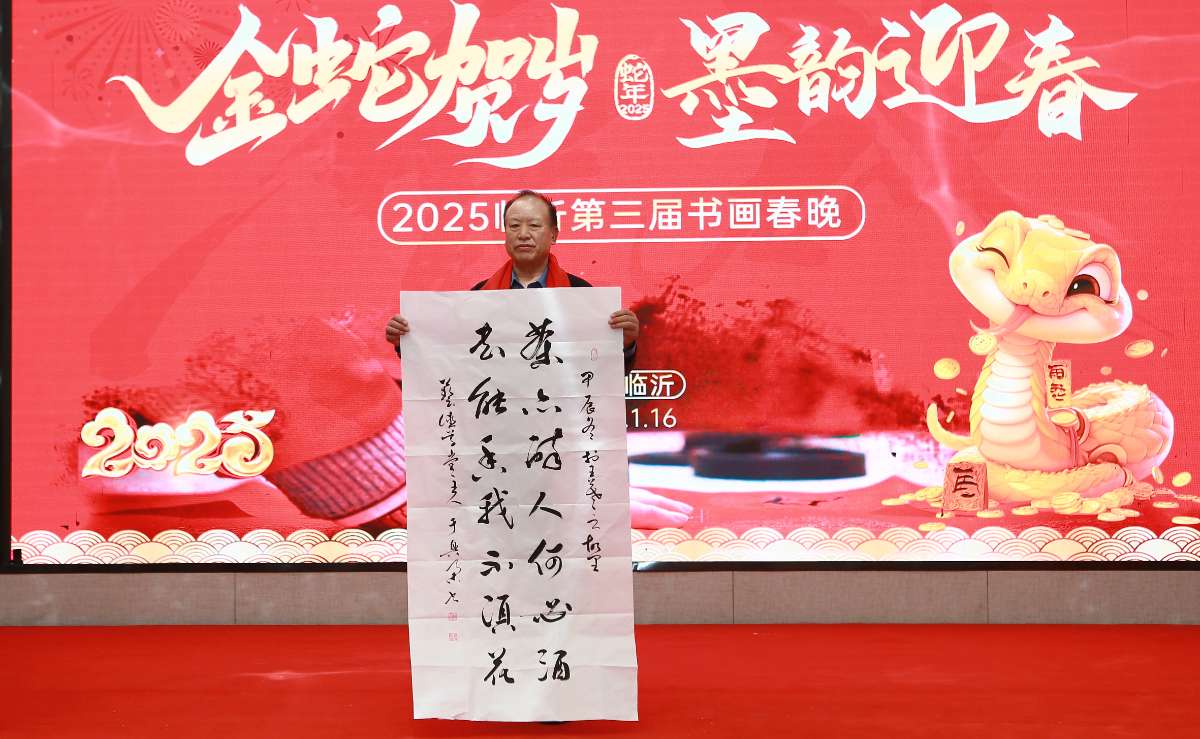 金蛇贺岁
蛇年
2025
墨韵迎春
2025临沂第三届书画春晚
临沂
.1.16
2025
甲辰冬于王羲之故里
茶亦醉人何必酒
书能香我不须花
堂主人